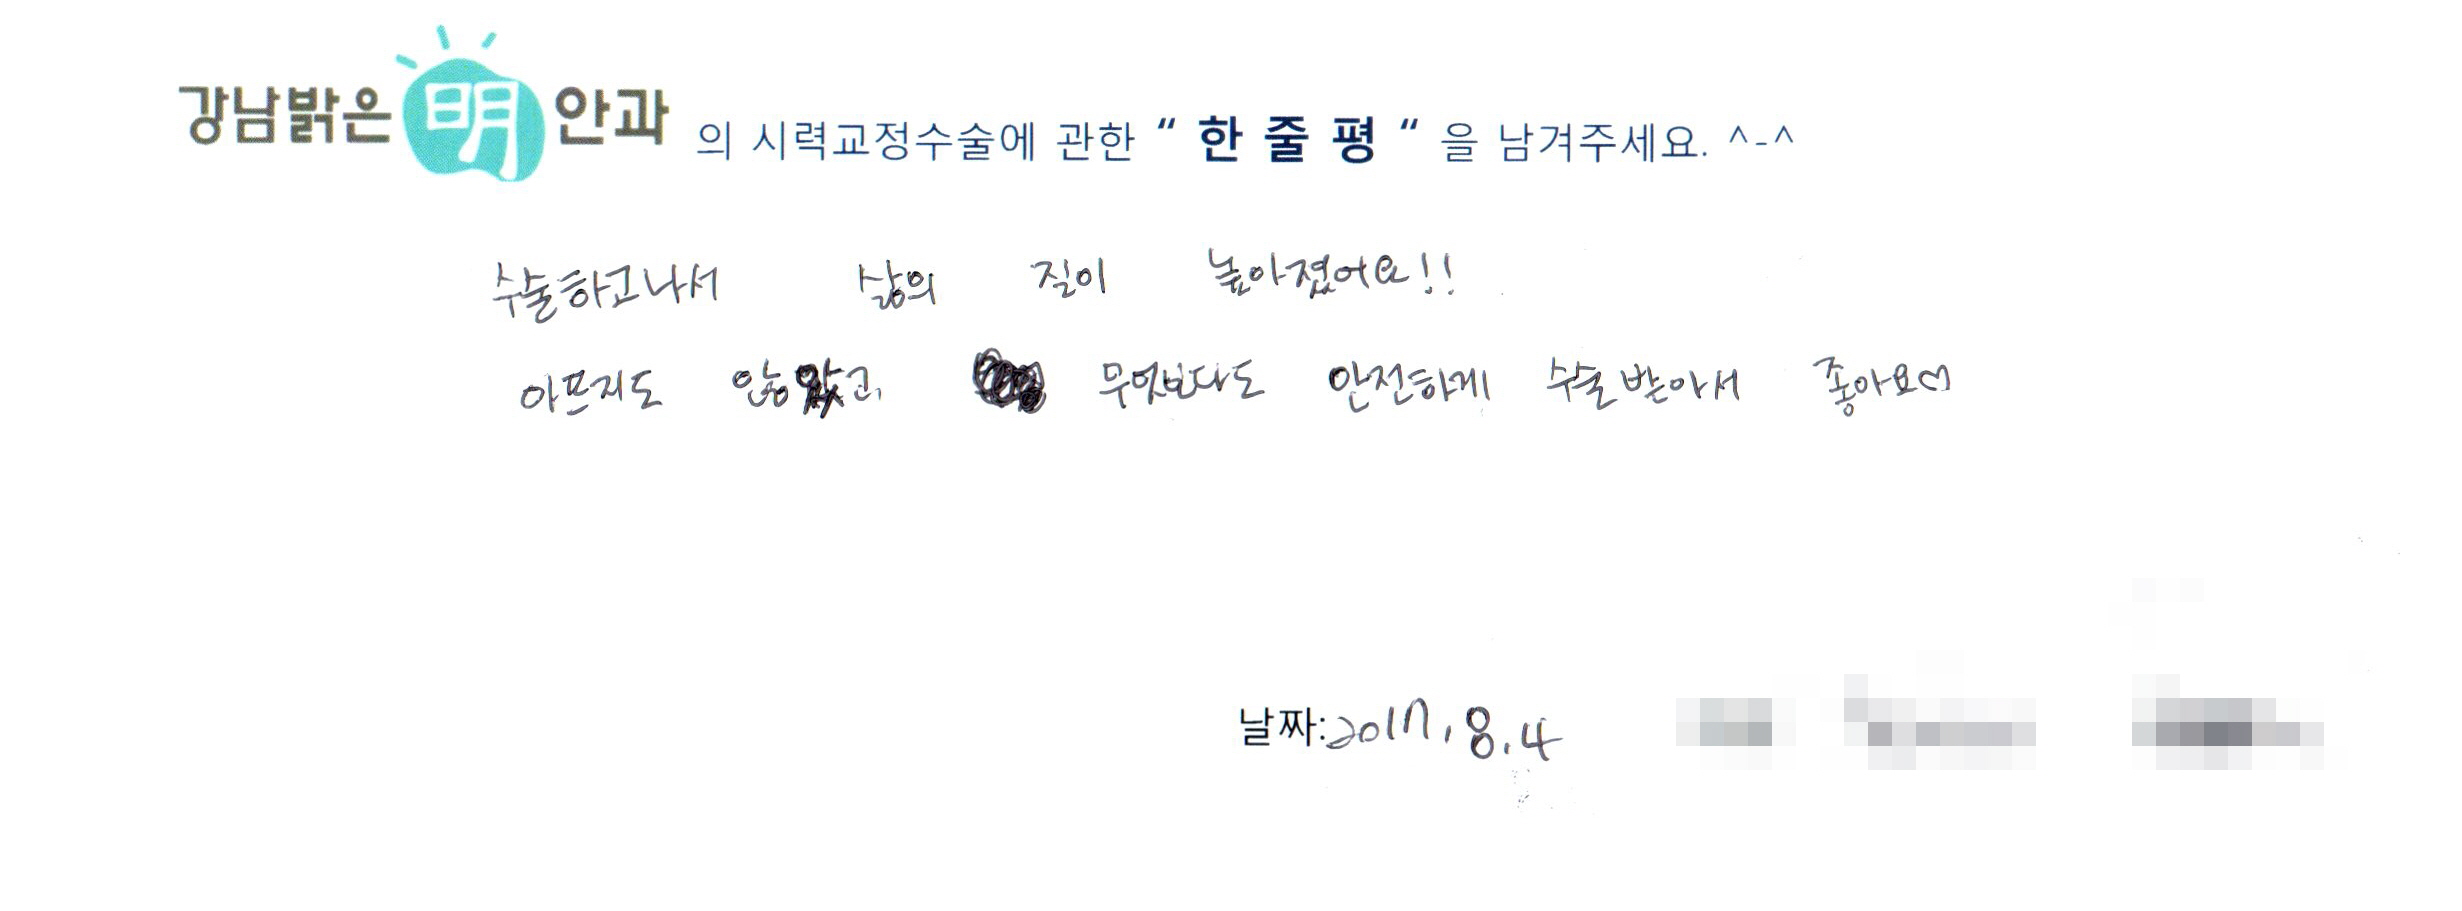 강남밝은 明 안과 의 시력교정수술에 관한 “ 한 줄 평 “ 을 남겨주세요. ^-^
수술하고나서 삶의 질이 높아졌어요!!
아프지도 않았고, 무엇보다도 안전하게 수술받아서 좋아요♡
날짜:2017.8.4